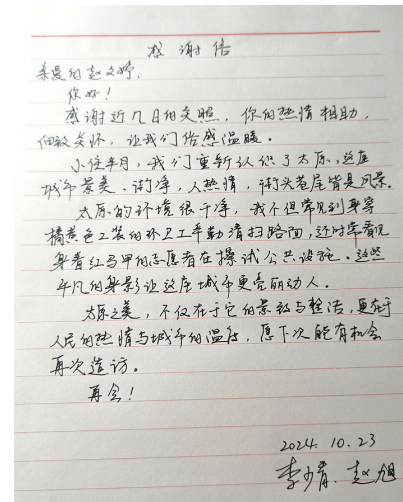 感谢信
亲爱的赵文婷,
你好!
感谢近几日的关照,你的热情相助,
细致关怀,让我们倍感温暖。
小住半月,我们重新认识了太原,这座
城市景美、街净,人热情,街头巷尾皆是风景。
太原的环境很干净,我不但常见到身穿
橘黄色工装的环卫工辛勤清扫路面,还时常看见
身着红马甲的志愿者在擦试公共设施。这些
平凡的身影让这座城市更亮丽动人。
太原之美,不仅在于它的景致与整洁,更在于
人民的热情与城市的温度,愿下次能有机会
再次造访。
再会!
2024.10.23
李少青、赵旭